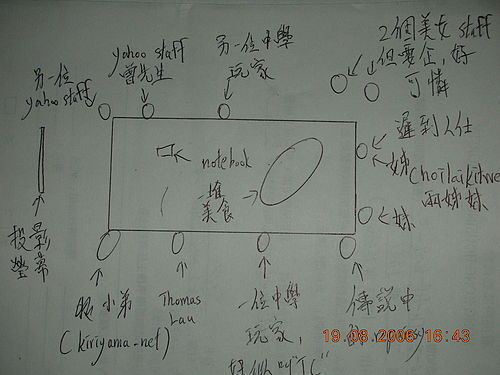 另一位
yahoo staff
yahoo staff
曾先生
另一位中學
玩家
2個美女 staff
但要企,好
可憐
遲到人仕
姊
Choilaikihwe
兩姊妹
妹
notebook
一堆
美食
投影
螢幕
小弟
(kiriyama-net)
Thomas
Lau
一位中學
玩家,
好似叫"TC"
傳說中
的
19.08.2006 16:43